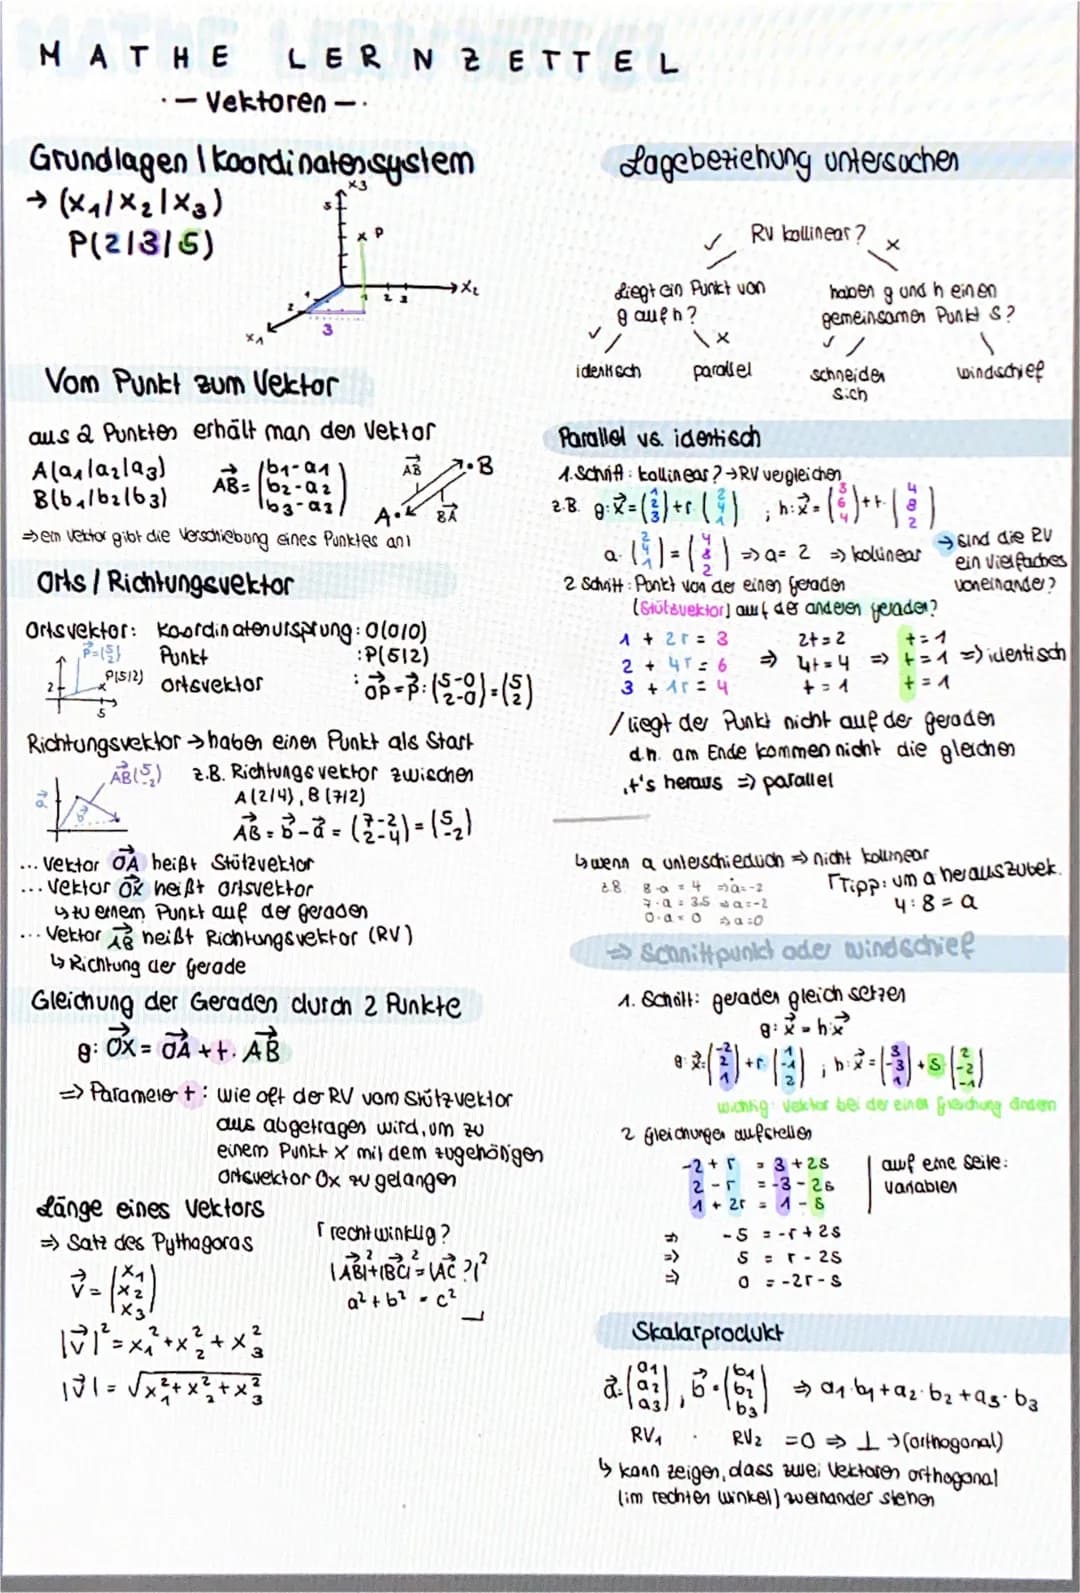 MATHE LERNZETTEL
·– Vektoren –·
Grundlagen | Koordinatensystem
→ (x₁/x₂|x₃)
P(2|3|5)
x₃
5
x P
x₂
1
2
1 2 3
3
x₁
Vom Punkt zum Vektor
aus 2 Punkten erhält man den Vektor
A(a₁|a₂|a₃)
B(b₁/b₂|b₃)
AB⃗ = (b₁-a₁ b₂-a₂ b₃-a₃)
AB⃗
B
A
BA⃗
⇒ ein Vektor gibt die Verschiebung eines Punktes an!
Orts / Richtungsvektor
Ortsvektor: Koordinatenursprung: O(0|0)
Punkt :P(5|2)
ortsvektor : OP⃗ = p⃗: (5-0 2-0) = (5 2)
p⃗=(5 2)
P(5|2)
2
5
Richtungsvektor → haben einen Punkt als Start
AB⃗ (5 -2)
z.B. Richtungsvektor zwischen
A(2/4), B(7/2)
AB⃗ = b⃗ - a⃗ = (7-2 2-4) = (5 -2)
a⃗
b⃗
... Vektor OA⃗ heißt Stützvektor
... Vektor OX⃗ heißt ortsvektor
↳ zu einem Punkt auf der geraden
... Vektor AB⃗ heißt Richtungsvektor (RV)
↳ Richtung der Gerade
Gleichung der Geraden durch 2 Punkte
g: OX⃗ = OA⃗ + t · AB⃗
⇒ Parameter t: wie oft der RV vom Stützvektor
aus abgetragen wird, um zu
einem Punkt X mit dem zugehörigen
Ortsvektor Ox zu gelangen
Länge eines Vektors
⇒ Satz des Pythagoras
v⃗ = (x₁ x₂ x₃)
|v⃗|² = x₁² + x₂² + x₃²
|v⃗| = √x₁² + x₂² + x₃²
⌈ rechtwinklig?
|AB⃗|² + |BC⃗|² = |AC⃗ ?|²
a² + b² = c² ⌋
Lagebeziehung untersuchen
RV kollinear?
✓ x
Liegt ein Punkt von
g auf h?
haben g und h einen
gemeinsamen Punkt S?
✓ x ✓
identisch
parallel
schneiden
sich
windschief
Parallel vs. identisch
1. Schritt: kollinear? → RV vergleichen
z.B. g: x⃗ = (1 2 3) + r · (2 4 1) ; h: x⃗ = (3 6 4) + t · (4 8 2)
a · (2 4 1) = (4 8 2) ⇒ a = 2 ⇒ kollinear
→ sind die RV
ein Vielfaches
voneinander?
2 Schritt: Punkt von der einen geraden
(Stützvektor) auf der anderen geraden?
1 + 2r = 3
2 + 4r = 6
3 + 1r = 4
⇒
2t = 2
4t = 4
t = 1
⇒
t = 1
t = 1
t = 1
⇒ identisch
/ liegt der Punkt nicht auf der geraden
d.h. am Ende kommen nicht die gleichen
t's heraus ⇒ parallel
↳ wenn a unterschiedlich ⇒ nicht kollinear
z.B. 8·a = 4 ⇒ a = -2
7·a = 3.5 ⇒ a = -2
0·a = 0 ⇒ a = 0
⌈ Tipp: um a herauszubek.
4 : 8 = a
⇒ Schnittpunkt oder windschief
1. Schritt: geraden gleich setzen
g: x⃗ = h: x⃗
g: x⃗ = (-2 2 1) + r · (1 -1 2) ; h: x⃗ = (3 -3 1) + s (2 -2 -1)
wichtig: Vektor bei der einen Gleichung ändern
2 Gleichungen aufstellen
-2 + r = 3 + 2s
2 - r = -3 - 2s
1 + 2r = 1 - s
auf eine Seite:
Variablen
⇒ -5 = -r + 2s
⇒ 5 = r - 2s
⇒ 0 = -2r - s
Skalarprodukt
a⃗ = (a₁ a₂ a₃), b⃗ = (b₁ b₂ b₃) ⇒ a₁·b₁ + a₂·b₂ + a₃·b₃
RV₁ · RV₂ = 0 ⇒ ⊥ → (orthogonal)
↳ kann zeigen, dass zwei Vektoren orthogonal
(im rechten Winkel) zueinander stehen